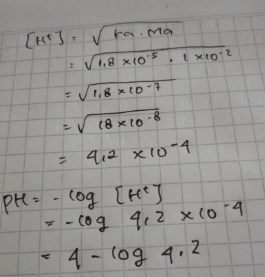 [H⁺] = √Ka . Ma
= √1,8 × 10⁻⁵ . 1 × 10⁻²
= √1,8 × 10⁻⁷
= √18 × 10⁻⁸
= 4,2 × 10⁻⁴
PH = - log [H⁺]
= -log 4,2 × 10⁻⁴
= 4 - log 4,2